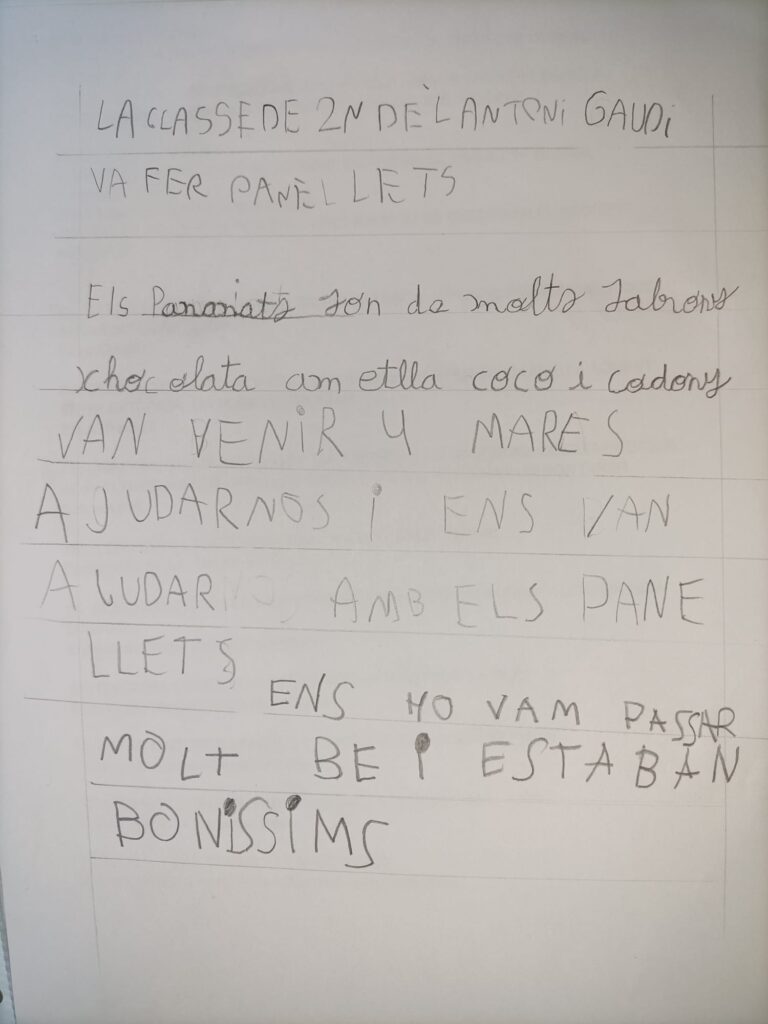 LA CLASSE DE 2N DE L'ANTONI GAUDI
VA FER PANÈLLETS
Els Panariats són de molts sabrons
xhocolata am etlla coco i codony
VAN VENIR 4 MARES
AJUDARNOS I ENS VAN
AJUDAR AMB ELS PANE
LLETS
ENS HO VAM PASSAR
MOLT BE I ESTABAN
BONISSIMS